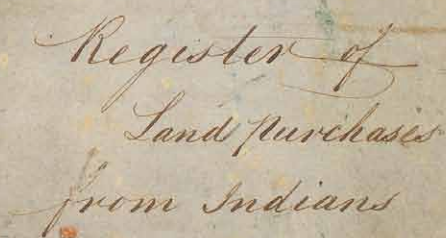 Register of
Land purchases
from Indians